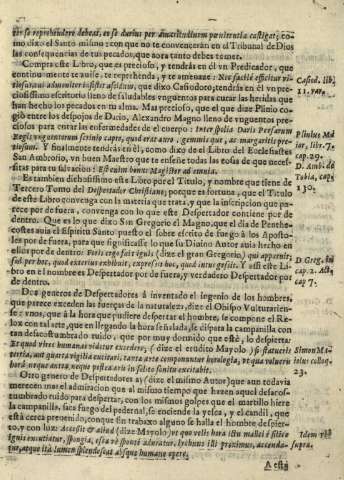 tir se reprehendere debeat, eo se durius per districtissimam poenitentiam castigat; co-
mo dixo el Santo mismo: con que no te convencerán en el Tribunal de Dios
las consequencias de tus pecados, que aora tanto debes temer.
Compra este Libro, que es precioso, y tendrás en él vn Predicador, que
continuamente te auise, te reprehenda, y te amenaze: Nec facilè efficitur vi-
tiosus vni adueniter insistit assidua, que dixo Casiodoro; tendrás en él vn pre-
Casiod. lib.
ciosissimo escritorio lleno de saludables vnguentos para curar las heridas que
11. var.
han hecho los pecados en tu alma. Mas precioso, que el que dize Plinio co-
gió entre los despojos de Dario, Alexandro Magno lleno de vnguentos pre-
ciosos para curar las enfermedades de el cuerpo: Inter spolia Daris Persarum
Plinius Ma
Regis vnguentorum scrinio capto, quod erat auro, gemmis que, ac margaritis pre-
ior, lib. 7.
tiosum. Y finalmente tendrás en él, como dixo de el Libro del Ecclesiastes
cap. 29.
San Ambrosio, vn buen Maestro que te enseñe todas las cosas de que neces-
D. Amb. de
sitas para tu saluacion: Est enim bonus Magister ad omnia.
Tobia, cap.
Es tambien dichosissimo este Libro por el Titulo, y nombre que tiene de
130.
Tercero Tomo del Despertador Christiano; porque es fortuna, que el Titulo
de este Libro convenga con la materia que trata, y que la inscripcion que pa-
rece por de fuera, convenga con lo que este Despertador contiene por de
dentro. Que es lo que dixo San Gregorio el Magno, que el dia de Penthe-
costes auia el Espiritu Santo puesto el sobre escrito de fuego à los Aposto-
les por de fuera, para que significasse lo que su Diuino Autor auia hecho en
ellos por de dentro: Foris ergo fuit ignis (dize el gran Gregorio) qui apparuit;
D. Greg.
sed per hoc, quod exterius exhibuit, expressit hoc, quod intus gessit. Y assi este Li-
cap. 2. Act.
bro en el nombre es Despertador por de fuera, y verdadero Despertador por
cap 7.
de dentro.
Dos generos de Despertadores à inventado el Ingenio de los hombres,
que parece exceden las fuerças de la naturaleza, dize el Obispo Vulturarien-
se: vnos, que à la hora que pudiere despertar el hombre, se compone el Re-
lox con tal arte, que en llegando la hora señalada, se dispara la campanilla con
tan desacostumbrado ruido, que por muy dormido que esté, lo despierta:
Et quod vires humanas videtur excedere, (dize el erudito Mayolo) si statueris
Simon Ma
verbi, aut quarta vigilia excitari, tanta arte componuntur horologia, vt qua volueris
iolus colloq.
hora neque antea, neque postea aris in subito sonitu excitabit.
23.
Otro genero de Despertadores ay (dize el mismo Autor) que aun todavia
merecen mas el admiracion que al mismo tiempo que hazen aquel desacos-
tumbrado ruido para despertar, con los mismos golpes que el martillo hiere
la campanilla, saca fuego del pedernal, se enciende la yesca, y el candil, que
está cerca prevenido, con que sin trabaxo alguno se halla el hombre despier-
to, y con luz: Accessit & aliud (dize Mayolo) vt quo velis hora ictu mallei è silice
ignis encutiatur,
supra.
que, atque ita lumen splendescat absque humano opere
A està